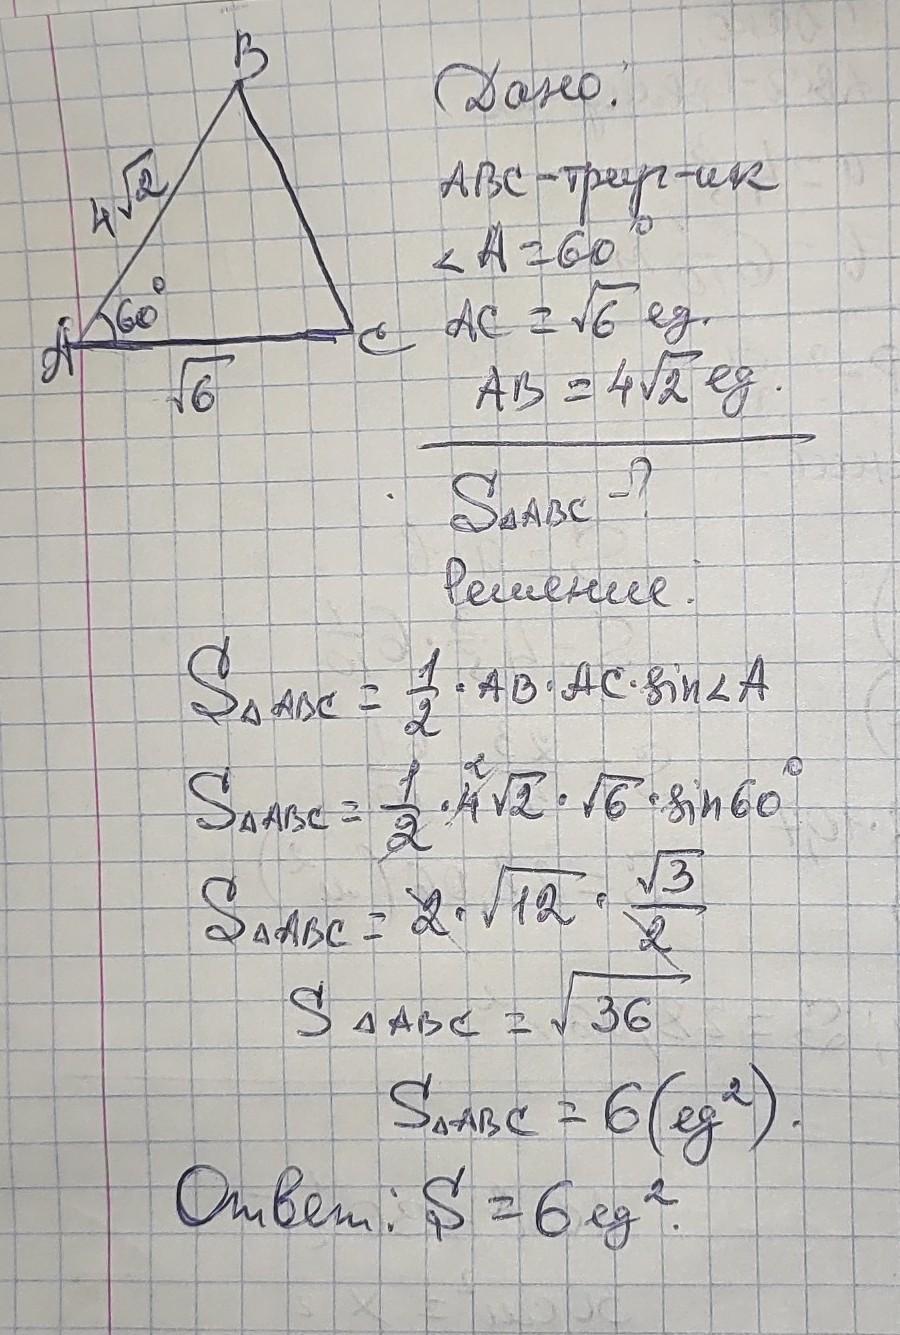 B
Дано:
4√2
ABC - треуг-ик
∠A = 60°
60°
AC = √6 ед.
A
C
√6
AB = 4√2 ед.
S△ABC - ?
Решение:
S△ABC = 1/2 · AB · AC · sin∠A
S△ABC = 1/2 · 4² √2 · √6 · sin60°
S△ABC = 2 · √12 · √3/2
S△ABC = √36
S△ABC = 6 (ед²).
Ответ: S = 6 ед².